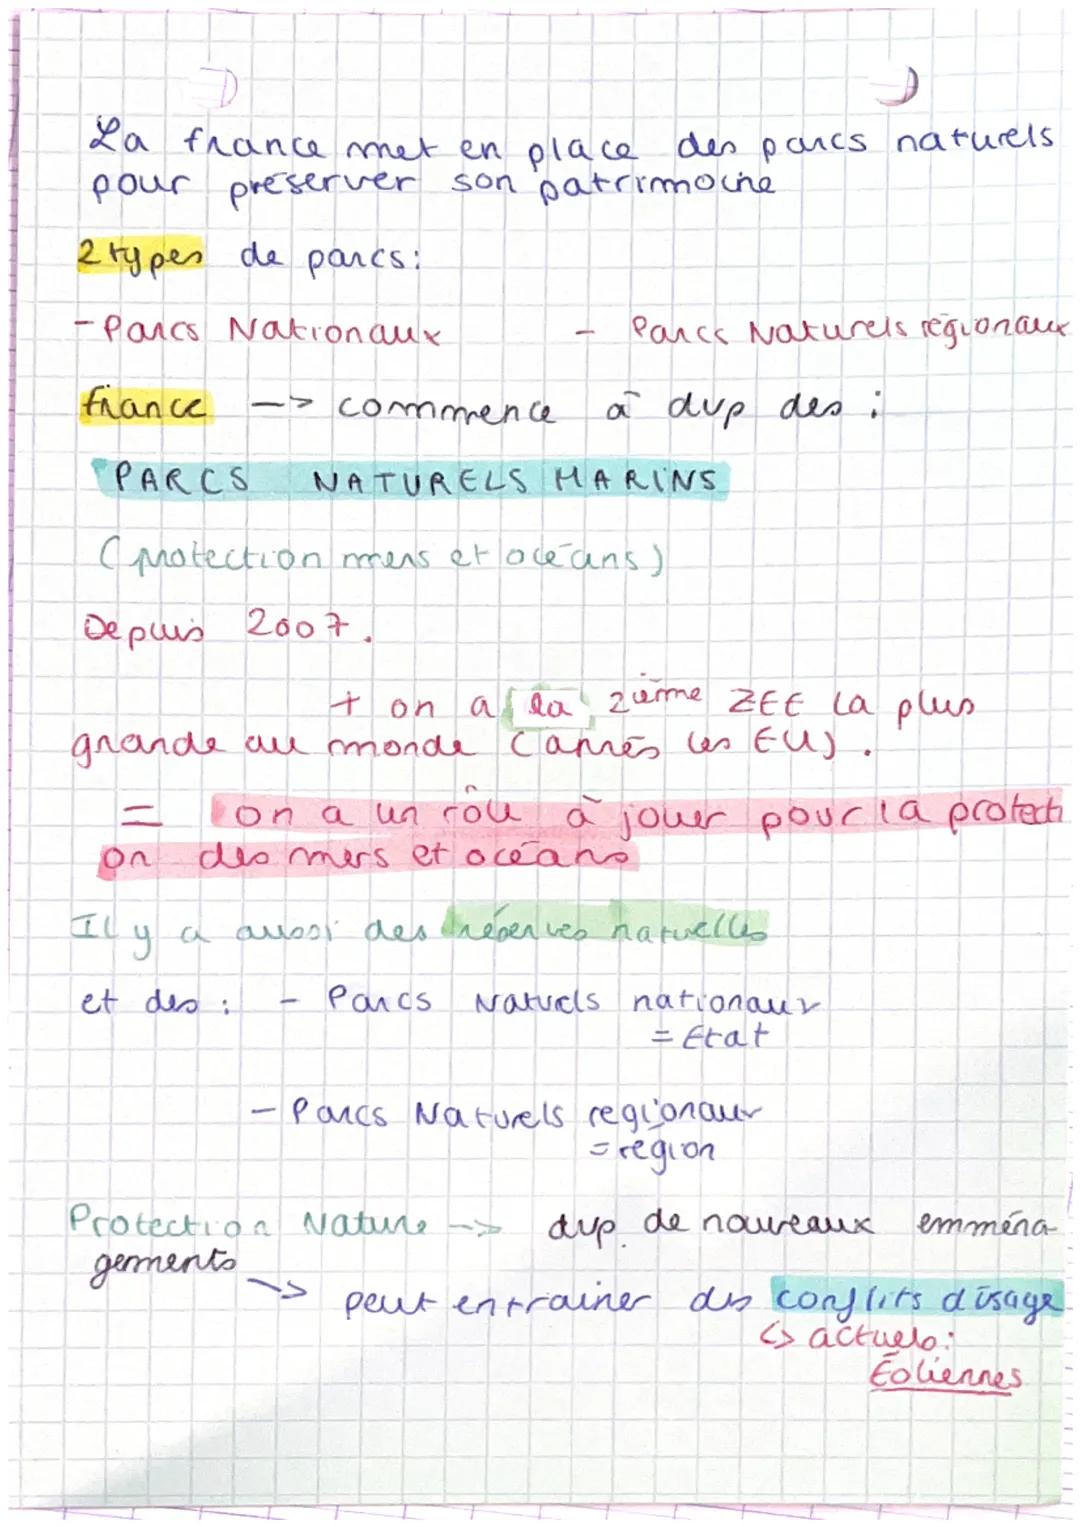 La france met en place des parcs naturels
pour préserver son patrimoine
2 types de parcs:
- Parcs Nationaux - Parcs Naturels régionaux
france --> commence à dvp des :
PARCS NATURELS MARINS
(protection mers et océans)
Depuis 2007.
+ on a la 2ième ZEE la plus
grande au monde (après les EU).
= on a un rôle à jouer pour la protecti
on des mers et océans
Il y a aussi des réserves naturelles
et des : - Parcs Naturels nationaux
= Etat
- Parcs Naturels regionaux
= région
Protection Nature --> dvp de nouveaux emména
gements
--> peut entrainer des conflits d'usage
<> actuels:
Éoliennes